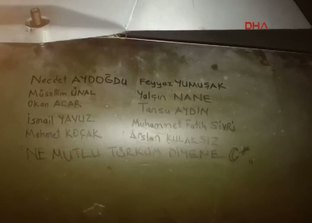 DHA
Necdet AYDOĞDU Feyyaz YUMUŞAK
Müsellim ÜNAL Yalçın NANE
Okan ACAR Tansu AYDIN
İsmail YAVUZ Muhammet Fatih SİVRİ
Mehmet KOÇAK Arslan KULAKSIZ
"NE MUTLU TÜRKÜM DİYENE